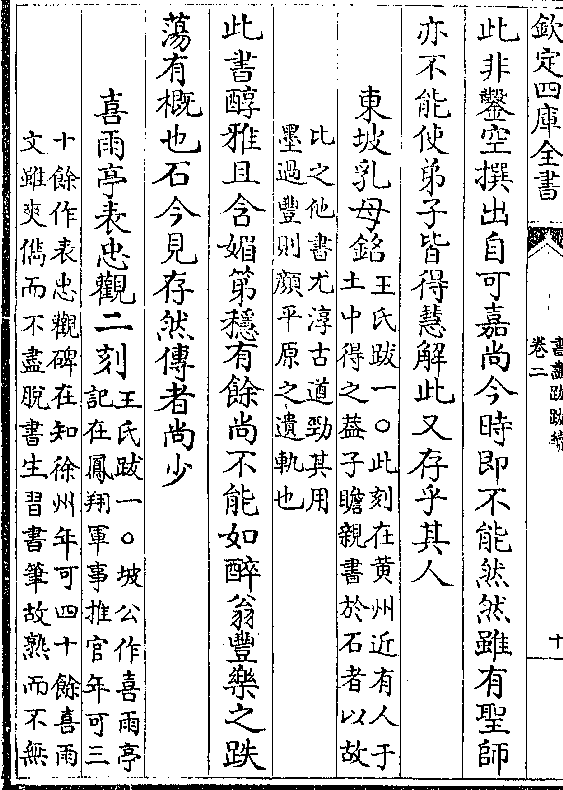 欽定四庫全書
書畫跋跋續
卷二
十
此非鑿空撰出自可嘉尚今時即不能然然雖有聖師
亦不能使弟子皆得慧解此又存乎其人
東坡乳母銘
王氏跋一○此刻在黄州近有人于
土中得之葢子瞻親書於石者以故
比之他書尤淳古遒勁其用
墨過豐則顔平原之遺軌也
此書醇雅且含媚第穩有餘尚不能如醉翁豐樂之跌
蕩有概也石今見存然傳者尚少
喜雨亭表忠觀二刻
王氏跋一○坡公作喜雨亭
記在鳳翔軍事推官年可三
十餘作表忠觀碑在知徐州年可四十餘喜雨
文雖爽儁而不盡脫書生習書筆故熟而不無